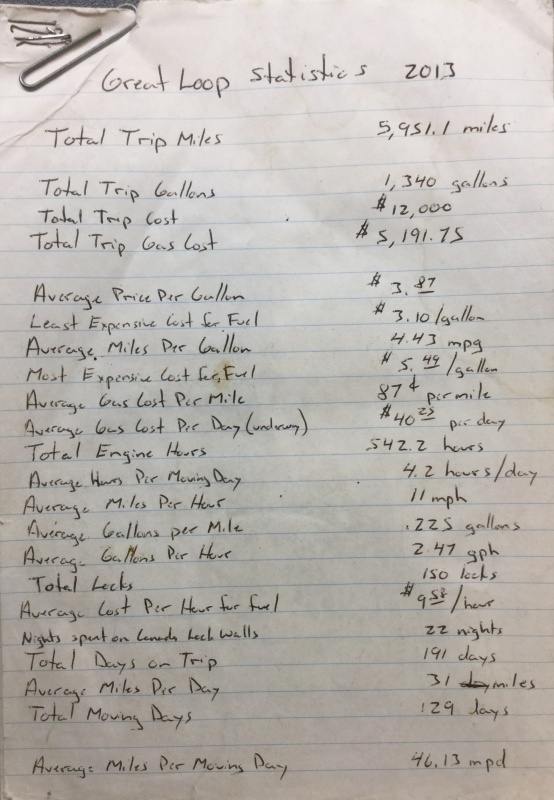 Great Loop Statistics 2013
Total Trip Miles 5,951.1 miles
Total Trip Gallons 1,340 gallons
Total Trip Cost $12,000
Total Trip Gas Cost $5,191.75
Average Price Per Gallon $3.87
Least Expensive Cost for Fuel $3.10/gallon
Average Miles Per Gallon 4.43 mpg
Most Expensive Cost for Fuel $5.49/gallon
Average Gas Cost Per Mile 87¢ per mile
Average Gas Cost Per Day (underway) $40.25 per day
Total Engine Hours 542.2 hours
Average Hours Per Moving Day 4.2 hours/day
Average Miles Per Hour 11 mph
Average Gallons per Mile .225 gallons
Average Gallons Per Hour 2.47 gph
Total Locks 150 locks
Average Cost Per Hour for Fuel $9.58/hour
Nights spent on Canada Lock Walls 22 nights
Total Days on Trip 191 days
Average Miles Per Day 31 miles
Total Moving Days 129 days
Average Miles Per Moving Day 46.13 mpd